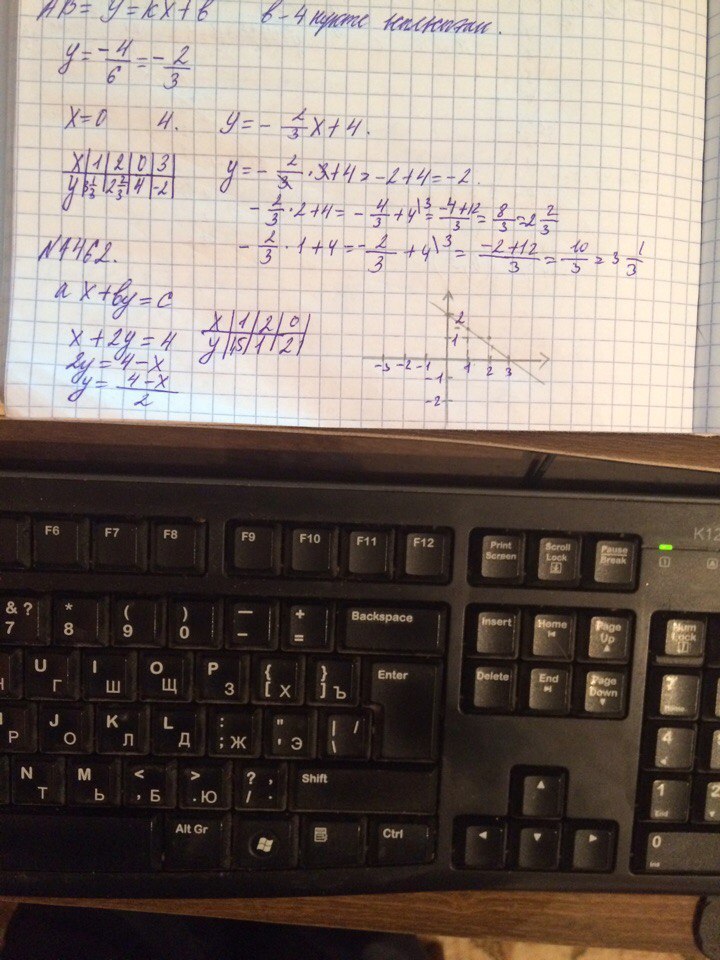 AB = y = kx + b в - 4 пункте
y = -4/6 = -2/3
x = 0 4. y = - 2/3 x + 4.
x | 1 | 2 | 0 | 3
y | 3 1/3 | 2 2/3 | 4 | -2
y = - 2/3 · 3 + 4 = -2 + 4 = -2.
- 2/3 · 2 + 4 = - 4/3 + 4\3 = -4+12/3 = 8/3 = 2 2/3
- 2/3 · 1 + 4 = - 2/3 + 4\3 = -2+12/3 = 10/3 = 3 1/3
N1462.
a x + by = c
x + 2y = 4
2y = 4 - x
y = 4-x/2
x | 1 | 2 | 0
y | 1,5 | 1 | 2
2
1
-3 -2 -1 1 2 3
-1
-2
K12
F6 F7 F8 F9 F10 F11 F12 Print Screen Scroll Lock Pause Break
& ? 7 * 8 ( 9 ) 0 — - + = Backspace Insert Home Page Up Num Lock
U Г I Ш O Щ P З { [ Х } ] Ъ Enter Delete End Page Down 7 Home
Р J О K Л L Д : ; Ж " ' Э | \ / 4
N Т M Ь < , Б > . Ю ? / , . Shift 1 End 2
Alt Gr Ctrl 0 Ins